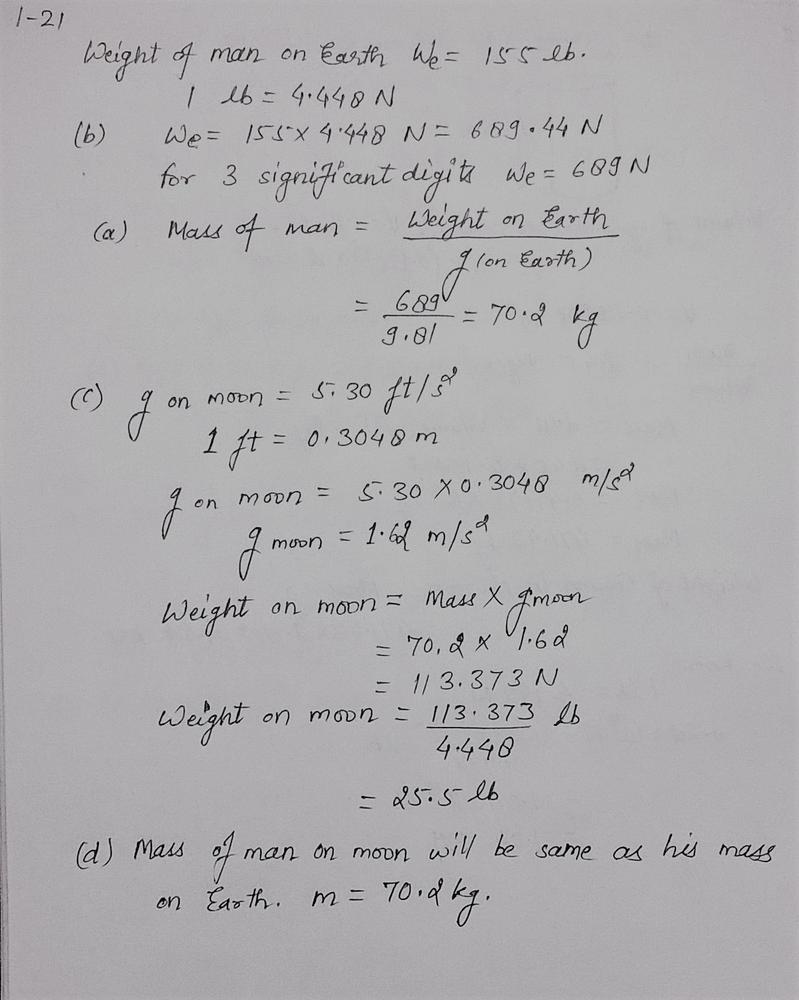 1-21
Weight of man on Earth We = 155 lb.
1 lb = 4.448 N
(b) We = 155 × 4.448 N = 689.44 N
for 3 significant digits We = 689 N
(a) Mass of man = Weight on Earth
g (on Earth)
= 689
9.81 = 70.2 kg
(c) g on moon = 5.30 ft/s²
1 ft = 0.3048 m
g on moon = 5.30 × 0.3048 m/s²
g moon = 1.62 m/s²
Weight on moon = Mass × gmoon
= 70.2 × 1.62
= 113.373 N
Weight on moon = 113.373 lb
4.448
= 25.5 lb
(d) Mass of man on moon will be same as his mass
on Earth. m = 70.2 kg.